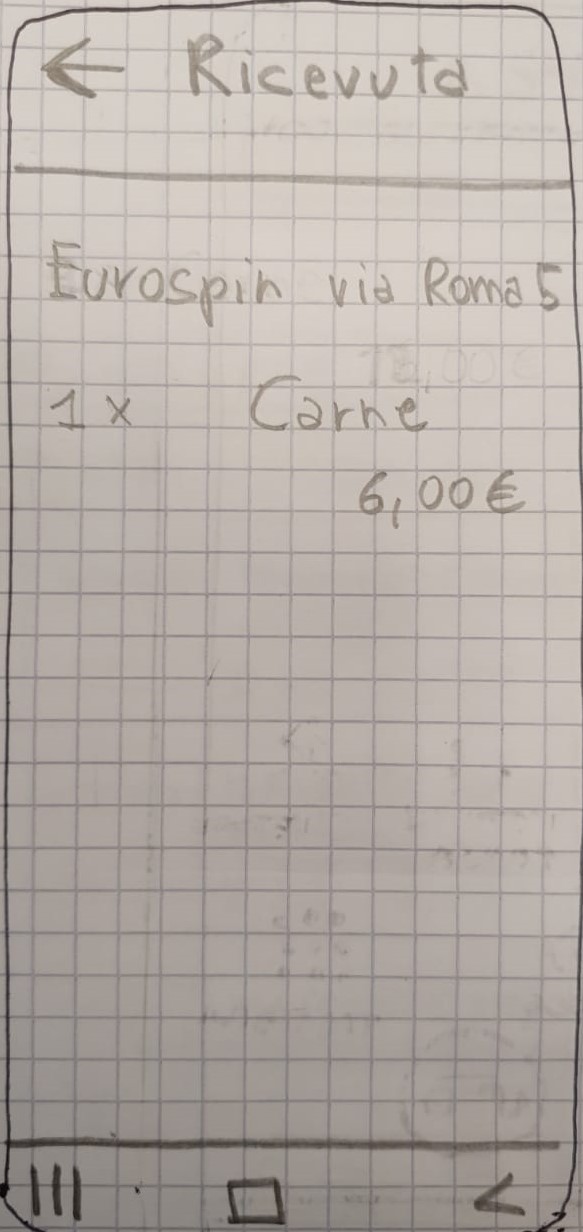 ← Ricevuta
Eurospin via Roma 5
1 x Carne
6,00€